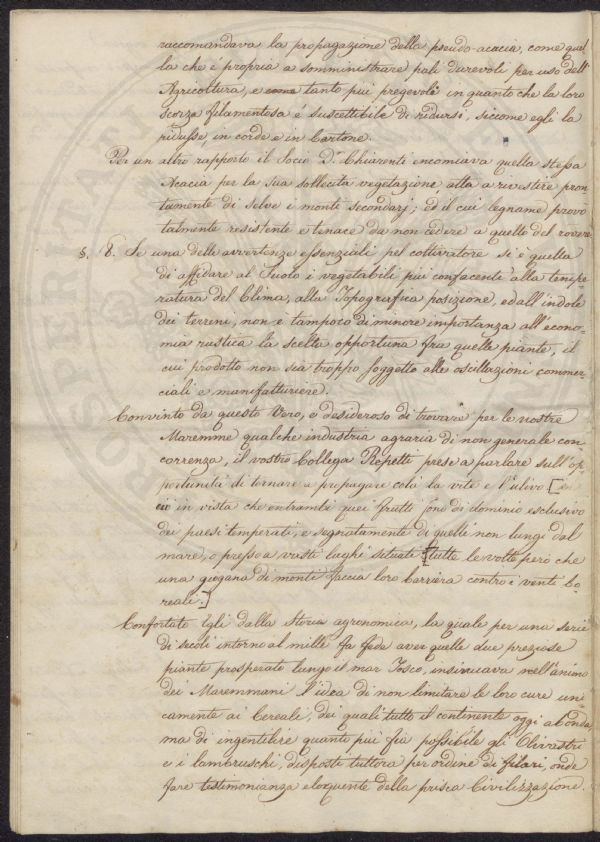 raccomandava la propagazione della pseudo-acacia, come quel
la che é propria a somministrare pali durevoli per uso dell'
Agricoltura, e come tanto piú pregevoli in quanto che la loro
scorza filamentosa é suscettibile di ridursi, siccome egli la
ridusse, in corde e in Cartone.
Per un altro rapporto il Socio Dr. Chiarenti encomiava quella stessa
Acacia per la sua sollecita vegetazione atta a rivestire pron
tamente di selve i monti secondarj; ed il cui legname provó
talmente resistente e tenace da non cedere a quello del rovere
§. 8. Se una delle avvertenze essenziali pel coltivatore si é quella
di affidare al Suolo i vegetabili piú confacenti alla tempe
ratura del Clima, alla Topografica posizione, ed all'indole
dei terreni, non é tampoco di minore importanza all'econo-
mia rustica la scelta opportuna fra quelle piante, il
cui prodotto non sia troppo soggetto alle oscillazioni commer-
ciali e manifatturiere.
Convinto da questo Vero, e desideroso di trovare per le nostre
Maremme qualche industria agraria di non generale con
correnza, il vostro Collega Repetti prese a parlare sull'op
portunitá di tornare a propagare colá la vite e l'ulivo [in
in vista che entrambi quei frutti sono di dominio esclusivo
dei paesi temperati, e segnatamente di quelli non lungi dal
mare, o presso a vasti laghi situati [tutte le volte peró che
una giogana di monti faccia loro barriera contro i venti bo
reali.]
Confortato Egli dalla Storia agronomica, la quale per una serie
di secoli intorno al mille fa fede aver quelle due preziose
piante prosperato lungo il mar Tosco, insinuava nell'animo
dei Maremmani l'idea di non limitare le loro cure uni
camente ai Cereali, dei quali tutto il continente oggi abonda,
ma di ingentilire quanto piú fia possibile gli Olivastri
e i lambruschi, disposti tuttora per ordine di filari, onde
fare testimonianza eloquente della prisca Civilizzazione.